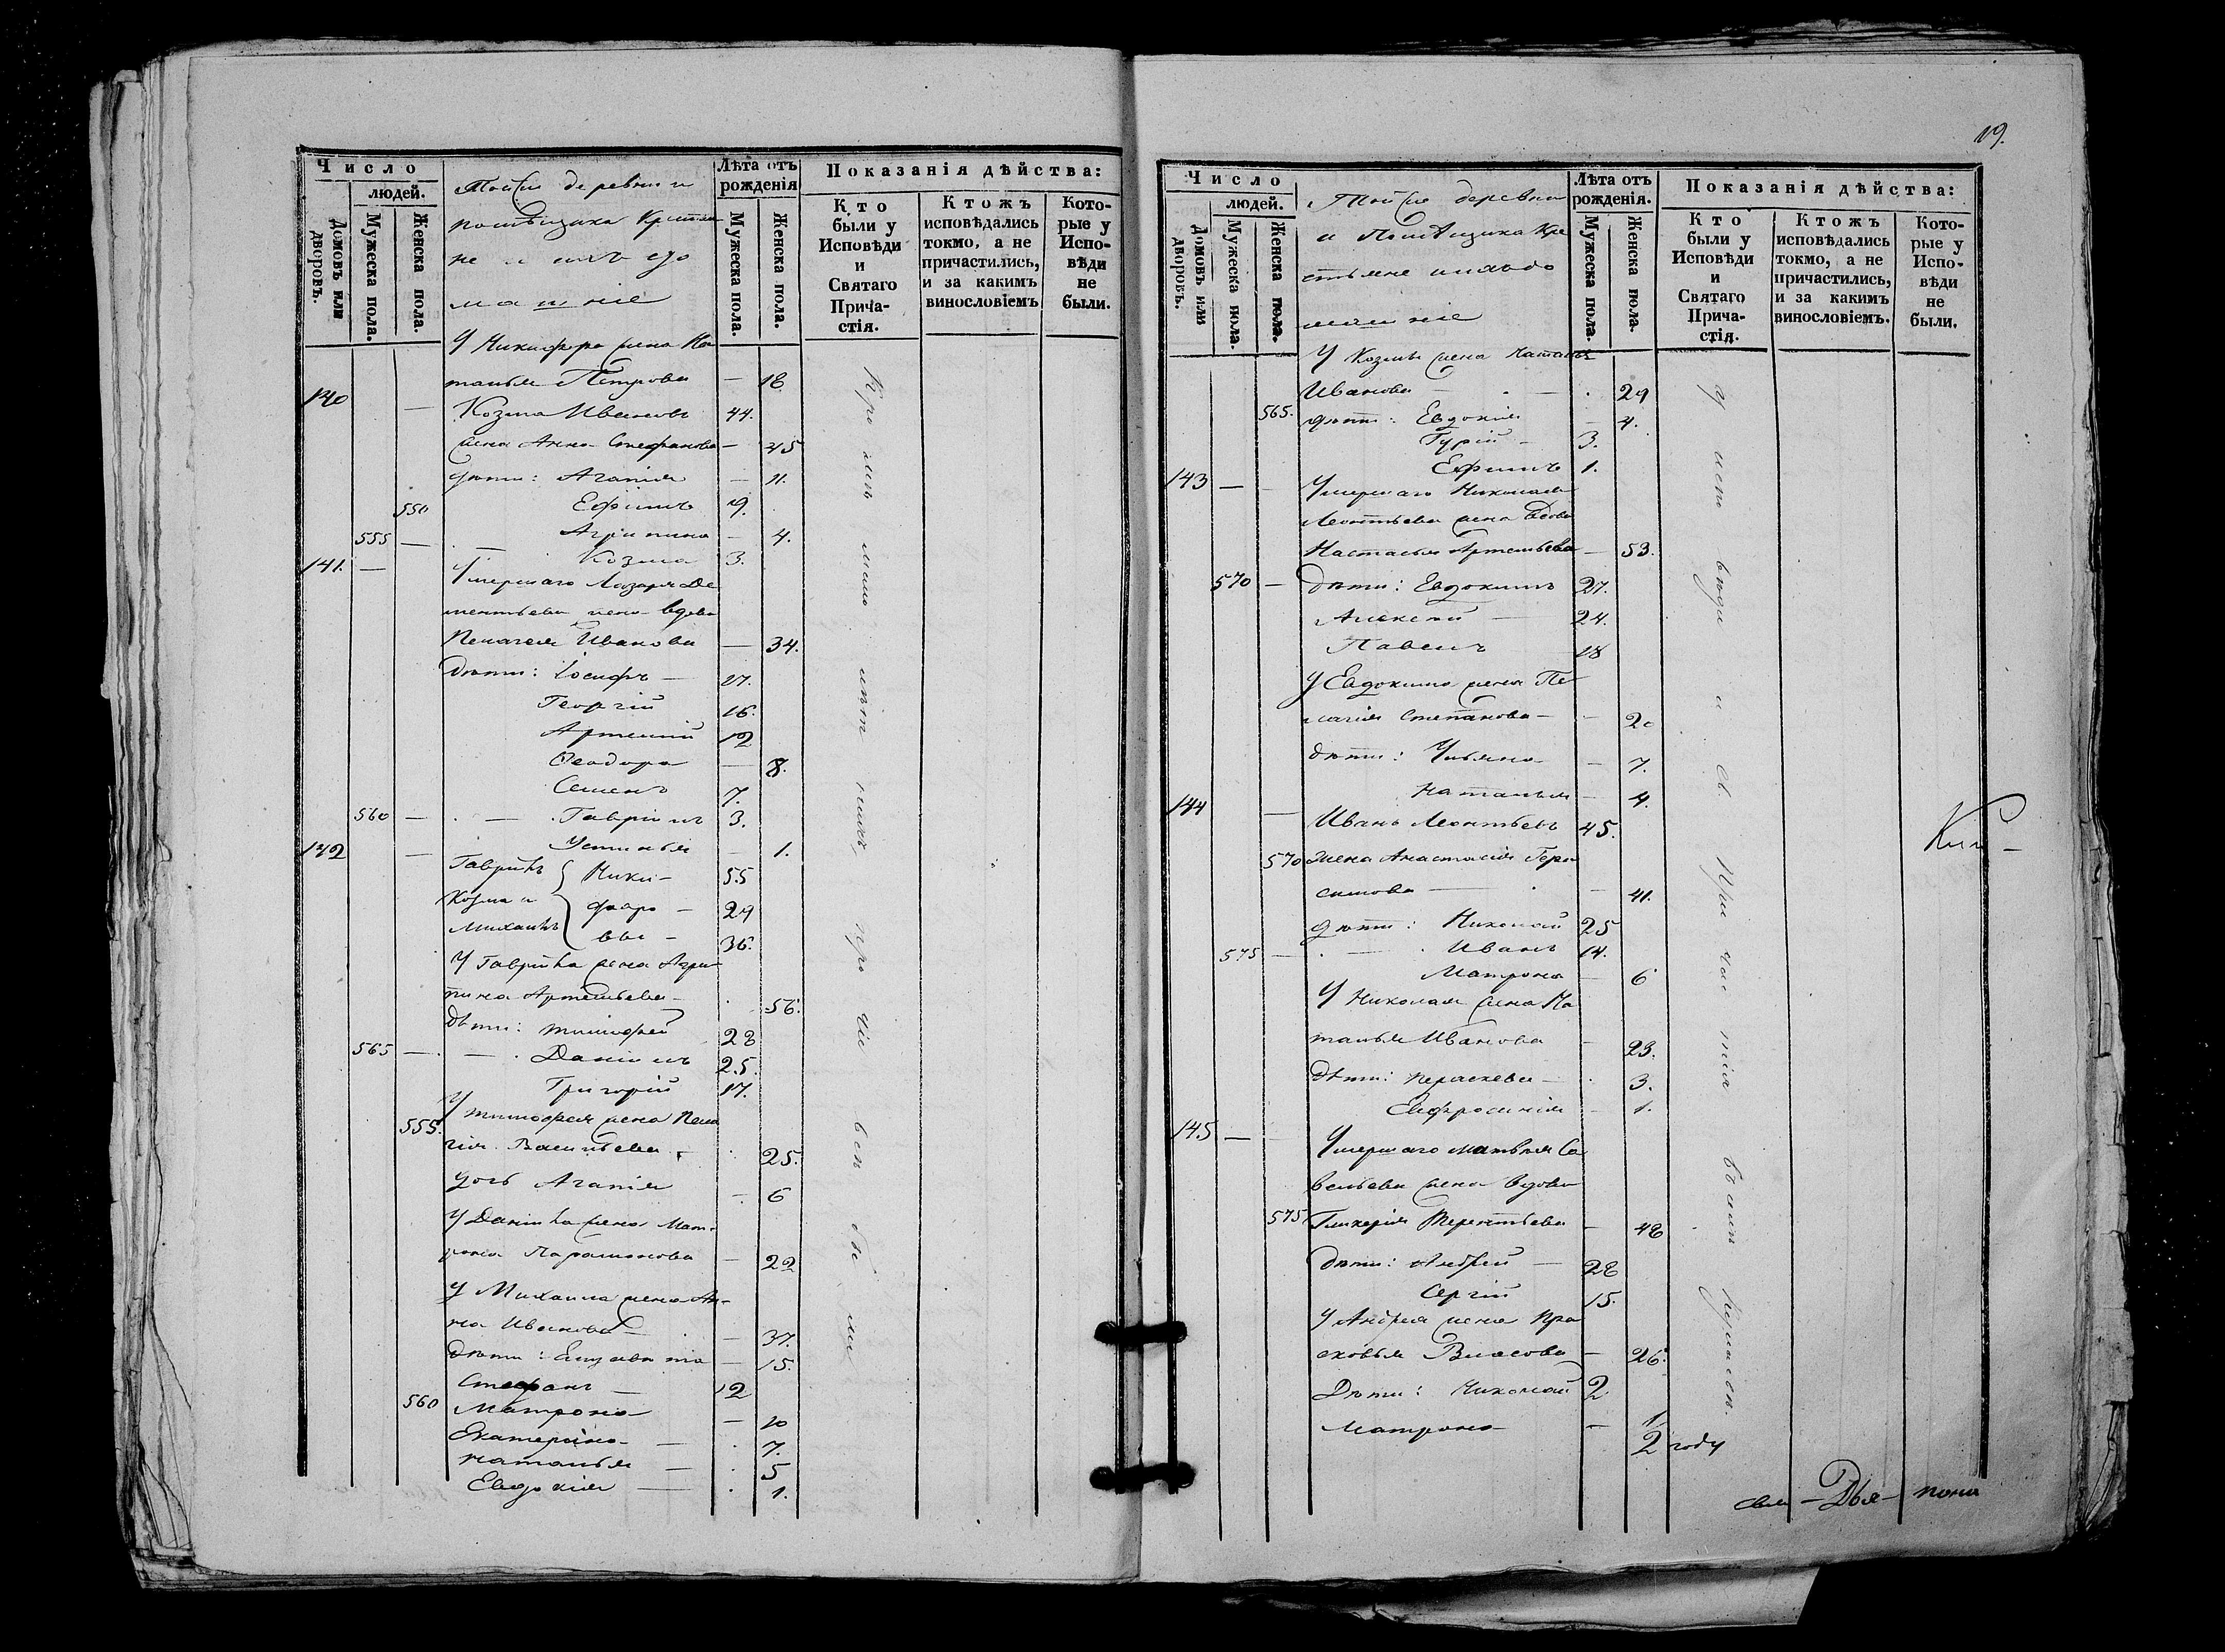 Число
людей.
Домовъ или дворовъ.
Мужеска пола.
Женска пола.
Той же деревни и
помѣщика Крестья
не и ихъ до
машніе
Лѣта отъ рожденія
Мужеска пола.
Женска пола.
Показанія дѣйства:
Кто были у Исповѣди и Святаго Прича-стія.
Ктожъ исповѣдались токмо, а не причастились, и за какимъ винословіемъ
Кото-рые у Испо-вѣди не были.
У Никифора жена На
талья Петрова — 18
140 — Козма Ивановъ 44.
жена Анна Стефанова — 45
дѣти: Агапія — 11.
550 Ефимъ 9.
555 — Агрипина — 4.
Козма 3.
141. — Умершаго Лазаря Де
ментьева жена вдова
Пелагея Иванова — 34.
Дѣти: Іосифъ — 17.
Георгій 16.
Артемій 12
Ѳеодора — 8.
Семенъ 7.
560 — Гавріилъ 3.
Устинья — 1.
142 — Гавріилъ Ники- 55
Козма и форо- 29
Михаилъ вы- 36.
У Гавріила жена Агри
пина Артемьева- 56.
Дѣти: Тимофей 28
565 — Даніилъ 25.
Григорій 17.
У Тимофея жена Пела
555. гія Васильева 25.
дочь Агапія — 6
У Даніила жена Мат
рона Парамонова — 22
У Михаила жена Ан-
на Иванова — 37.
Дѣти: Елизавета — 15.
Стефанъ — 12
560 Матрона — 10
Екатерина — 7.
Наталья — 5
Евдокія — 1.
всѣ бы ли
19.
Число
людей.
Домовъ или дворовъ.
Мужеска пола.
Женска пола.
Той же деревни
и Помѣщика Кре
стьяне и ихъ до
машніе
Лѣта отъ рожденія.
Мужеска пола.
Женска пола.
Показанія дѣйства:
Кто были у Исповѣди и Святаго Прича-стія.
Ктожъ исповѣдались токмо, а не причастились, и за какимъ винословіемъ.
Кото-рые у Испо-вѣди не были.
У Козмы жена Наталья
Иванова — 29
565. дѣти: Евдокія — 4.
Гурій — 3.
Ефимъ 1.
143 — Умершаго Николая
Леонтьева жена вдова
Настасья Артемьева — 53.
570 — Дѣти: Евдокимъ 27.
Алексѣй — 24.
Павелъ 18
У Евдокима жена Пе
лагія Степанова — 20
дѣти: Ульяна — 7.
Наталья — 4.
144 — Иванъ Леонтьевъ 45.
570 жена Анастасія Гера
симова — 41.
дѣти: Николай 25
575 — Иванъ 14.
Матрона — 6
У Николая жена На
талья Иванова — 23.
Дѣти: Параскева — 3.
Евфросинія — 1.
145 — Умершаго Матвѣя Са
вельева жена вдова
575 Гликерія Терентьева — 48
Дѣти: Андрей — 28
Сергій 15.
У Андрея жена Пра
сковья Власова — 26.
Дѣти: Николай 2
Матрона — 1/2 году
у испо вѣди и св. При час тія
Дья-